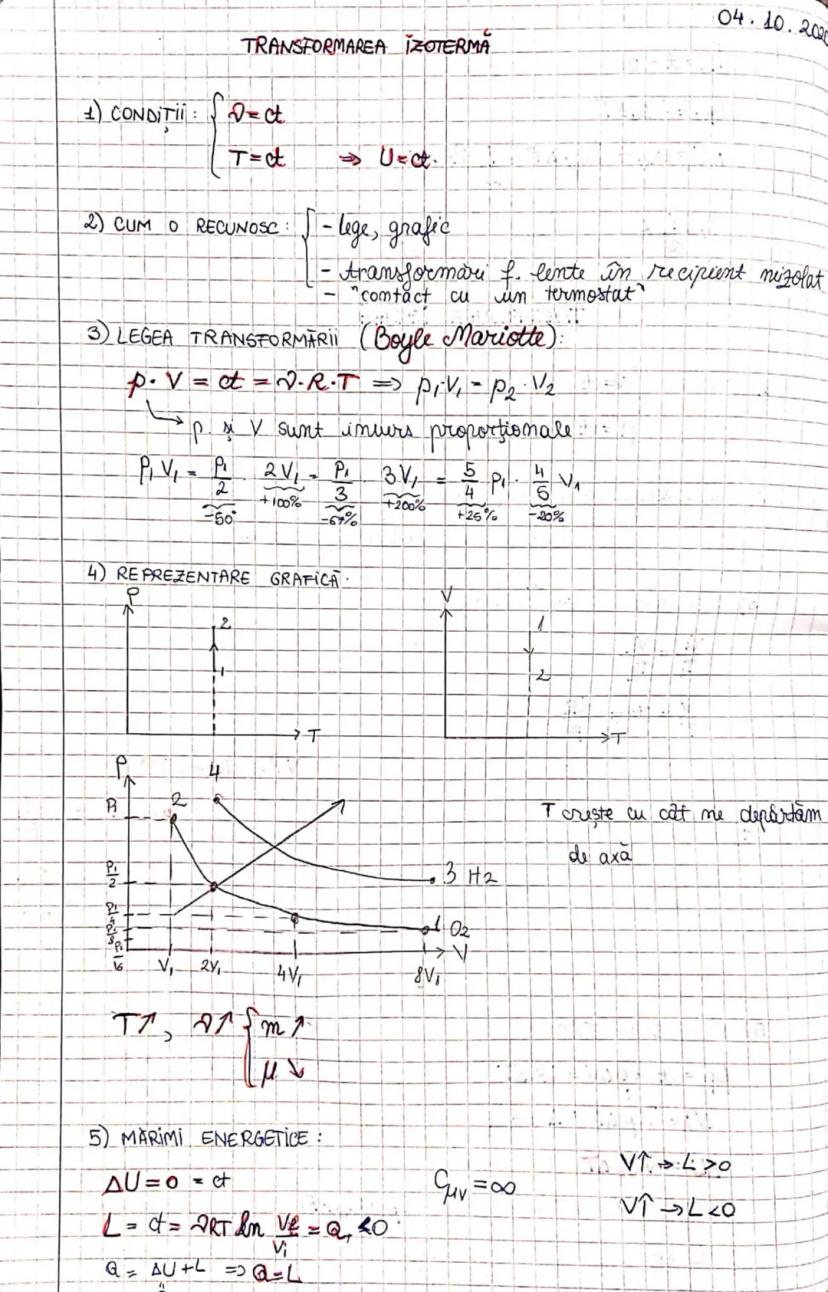 04.10.202
TRANSFORMAREA IZOTERMĂ
1) CONDIȚII: { ν=ct
T=ct ⇒ U=ct.
2) CUM O RECUNOSC: { - lege, grafic
- transformări f. lente în recipient nizolat
- "contact cu un termostat"
3) LEGEA TRANSFORMĂRII (Boyle Mariotte):
p·V = ct = ν·R·T ⇒ p₁·V₁ = p₂·V₂
↳ p și V sunt invers proporționale
P₁V₁ = P₁/2 · 2V₁ = P₁/3 · 3V₁ = 5/4 P₁ · 4/5 V₁
-50° +100% -67% +200% +25% -20%
4) REPREZENTARE GRAFICĂ.
P V
2 1
1 2
T T
P 4
P₁ 2
T crește cu cât ne depărtăm
de axă
P₁/2 3 H2
P₁/4
P₁/8 1 O2
P₁/16 V
V₁ 2V₁ 4V₁ 8V₁
T↑, ν↑ { m ↑
μ ↘
5) MĂRIMI ENERGETICE:
ΔU=0 = ct Cμv = ∞ V↑ → L>0
V↑ → L<0
L = ct = νRT ln Vf/Vi = Q, <0
Q = ΔU+L ⇒ Q=L